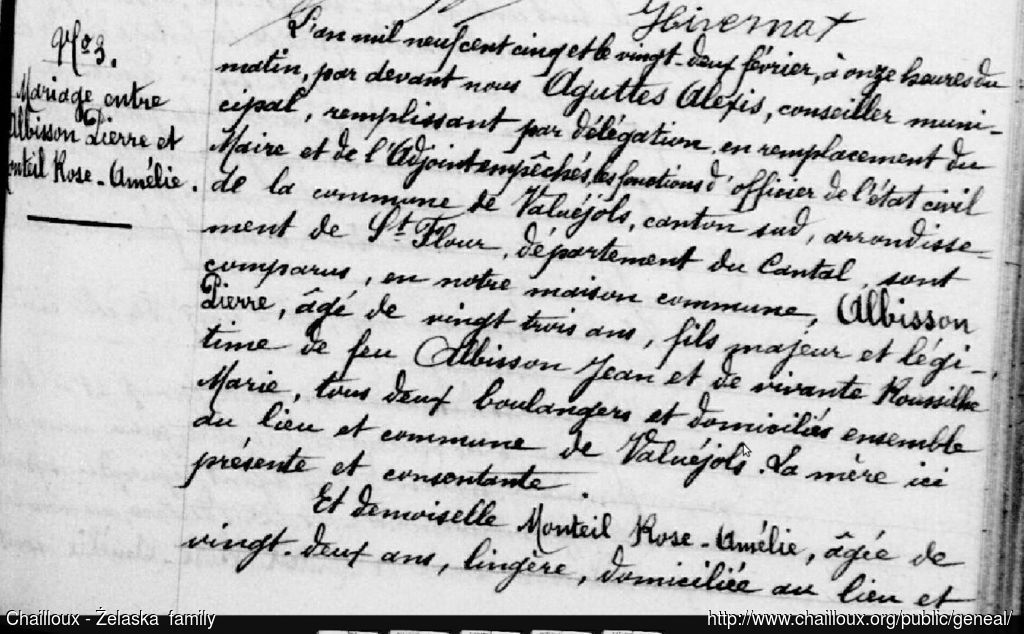 Hivernat
Nº 3.
Mariage entre
Albisson Pierre et
Monteil Rose-Amélie.
L'an mil neuf cent cinq et le vingt-deux février, à onze heures du
matin, par devant nous Aguttes Alexis, conseiller muni-
cipal, remplissant par délégation, en remplacement du
Maire et de l'Adjoint empêchés, les fonctions d'officier de l'état civil
de la commune de Valuéjols, canton sud, arrondisse-
ment de St Flour, département du Cantal, sont
comparus, en notre maison commune, Albisson
Pierre, âgé de vingt trois ans, fils majeur et légi-
time de feu Albisson Jean et de vivante Roussilhe
Marie, tous deux boulangers et domiciliés ensemble
au lieu et commune de Valuéjols. La mère ici
présente et consentante
Et demoiselle Monteil Rose-Amélie, âgée de
vingt-deux ans, lingère, domiciliée au lieu et
Chailloux - Żelaska family
http://www.chailloux.org/public/geneal/